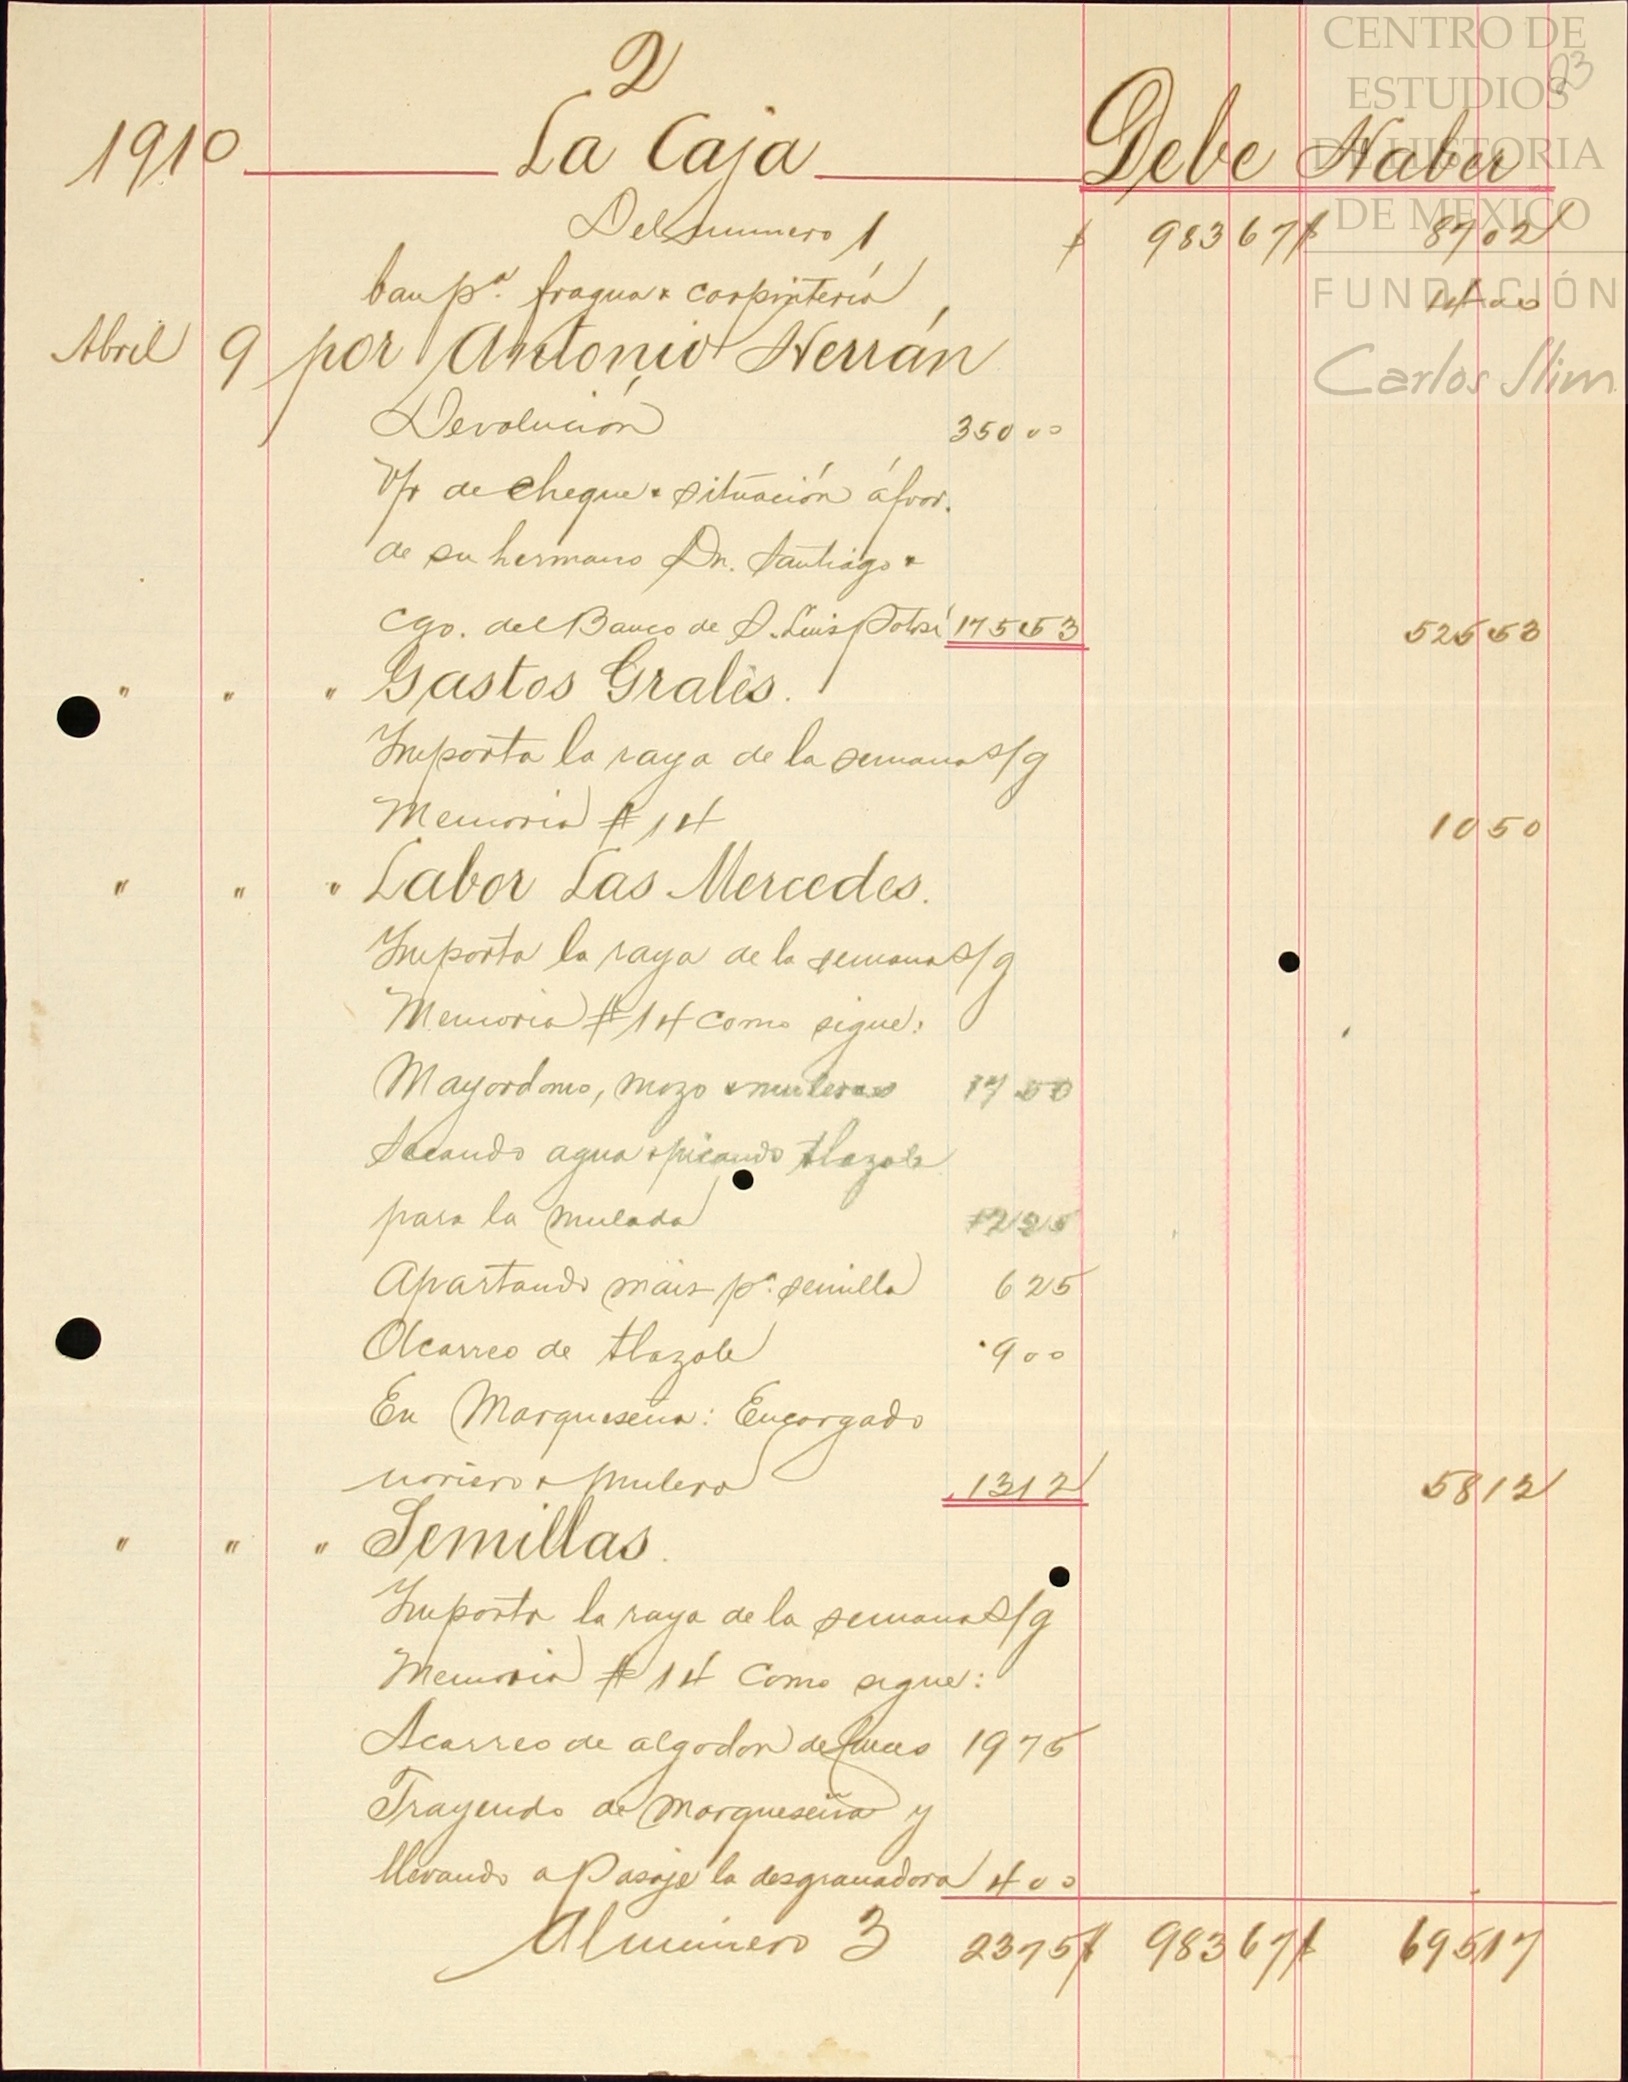 CENTRO DE
ESTUDIOS
DE HISTORIA
DE MEXICO
FUNDACIÓN
Carlos Slim
93
2
1910 La Caja Debe Haber
Del número 1 $ 983 67 $ 87 02
ban pª. fragua & carpintería 14 00
Abril 9 por Antonio Herrán
Devolución 350 00
V/r de cheque & situación á fvor.
de su hermano Dn. Santiago &
cgo. del Banco de S. Luis Potosí 175 53 525 53
" " " Gastos Grales.
Importa la raya de la semana s/g
Memoria # 14 10 50
" " " Labor Las Mercedes.
Importa la raya de la semana s/g
Memoria # 14 como sigue:
Mayordomo, mozo & muleros 17 50
Sacando agua & picando tlazole
para la mulada 12 25
Apartando maiz pª. semilla 6 25
Acarreo de tlazole 9 00
En Marqueseña: Encargado
noriero & mulero 13 12 58 12
" " " Semillas.
Importa la raya de la semana s/g
Memoria # 14 como sigue:
Acarreo de algodon de 19 75
Trayendo de Marqueseña y
llevando a Pasaje la desgranadora 4 00
Al número 3 23 75 $ 983 67 $ 695 17